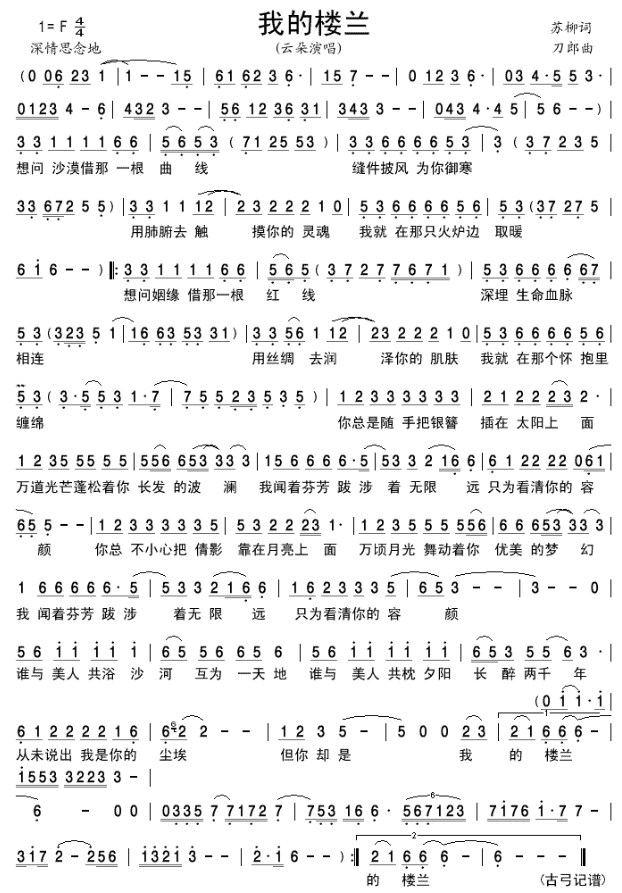 我的楼兰
1= F 4/4
苏柳词
深情思念地
(云朵演唱)
刀郎曲
(0 06 23 1 | 1 - - 15 | 61 62 3 6· | 15 7 - - | 0 12 3 6· | 03 4· 5 53 |
0123 4 - 6 | 432 3 - - | 56 12 36 31 | 343 3 - - | 043 4· 4 5 | 5 6 - - )
3 3 1 1 1 1 6 6 | 5 6 5 3 ( 71 25 53 ) | 3 3 6 6 6 6 5 3 | 3 ( 37 23 5
想问 沙漠借那 一根 曲 线 缝件披风 为你御寒
33 672 5 5 ) | 3 3 1 1 12 | 23 2 2 2 1 0 | 5 3 6 6 6 6 5 6 | 5 3 (37 27 5
用肺腑去 触 摸你的 灵魂 我就 在那只火炉边 取暖
6 1 6 - - ) ‖: 3 3 1 1 1 1 6 6 | 5 6 5 ( 3 7 2 7 7 6 7 1 ) | 5 3 6 6 6 6 67
想问姻缘 借那一根 红 线 深埋 生命血脉
5 3 (323 5 1 | 16 63 53 31) | 3 3 56 1 12 | 23 2 2 2 1 0 | 5 3 6 6 6 6 5 6
相连 用丝绸 去润 泽你的 肌肤 我就 在那个怀 抱里
5 3 ( 3· 5 5 3 1· 7 | 7 5 5 2 3 5 3 5 ) | 1 2 3 3 3 3 3 3 | 2 1 2 2 23 2·
缠绵 你总是随 手把银簪 插在 太阳上 面
1 2 35 55 5 5 | 5 56 653 3 3 | 1 5 6 6 6 6· 5 | 5 3 3 2 16 6 | 6 1 22 2 2 061
万道光芒蓬松着你 长发 的波 澜 我闻着芬芳 跋涉 着 无限 远 只为看清你的 容
65 5 - - | 1 2 3 3 3 3 3 5 | 5 3 2 2 23 1· | 1 2 3 5 5 5 556 | 6 6 653 33 3
颜 你总 不小心把 倩影 靠在月亮上 面 万顷月光 舞动着你 优美 的梦 幻
1 6 6 6 6 6· 5 | 5 3 3 2 16 6 | 1 6 2 3 3 3 3 5 | 6 5 3 - - | 3 - - 0
我 闻着芬芳 跋 涉 着无 限 远 只为看清你的 容 颜
5 6 1 1 1 1 1 | 6 5 5 6 5 6 6 | 5 6 1 1 1 1 1 | 6 5 3 5 5 6 3·
谁与 美人 共浴 沙 河 互为 一天 地 谁与 美人 共枕 夕阳 长 醉 两千 年
(0 1 1· 1
1
6 1 2 2 2 2 1 6 | 6 2 2 - - | 1 2 3 5 - | 5 0 0 23 | 2 1 6 6 6
从未说出 我是你的 尘埃 但你 却 是 我 的 楼兰
1553 3223 3 - |
6 - 0 0 | 0335 7 7172 7 | 753 16 6· 567123 | 7176 1· 7 7 -
6
317 2 - 256 | 1321 3 - - | 2· 1 6 - - ) :‖ 2 1 6 6 6 - | 6 - - - ‖
2
的 楼兰 (古弓记谱)